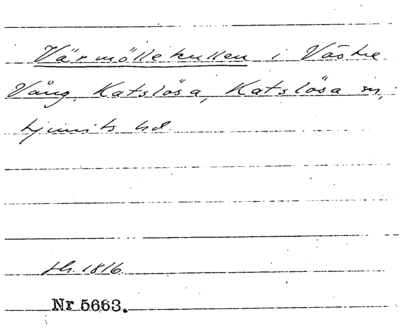 Värmöllekullen i Västre
Vång, Katslösa, Katslösa sn,
Ljunits hd.
sk. 1816.
Nr 5663.